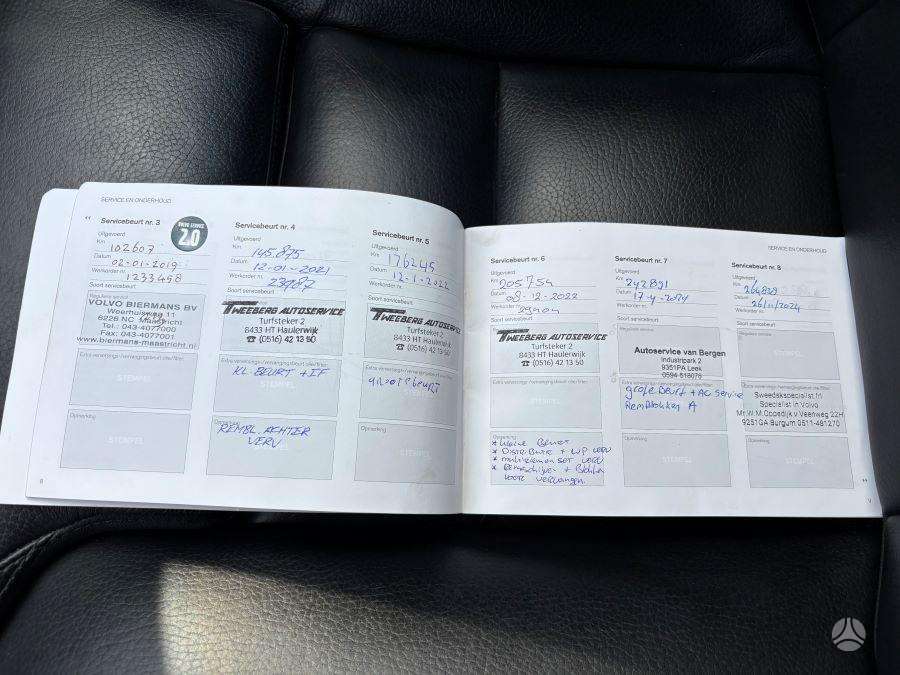 SERVICE EN ONDERHOUD
Servicebeurt nr. 3
VOLVO SERVICE
2.0
Uitgevoerd
Km 102607
Datum 02-01-2019
Werkorder nr. 1233498
Soort servicebeurt
Reguliere service
VOLVO BIERMANS BV
Weerhuisweg 11
6226 NC Maastricht
Tel.: 043-4077000
Fax: 043-4077001
www.biermans-maastricht.nl
Extra verversings-/vervangingsbeurt olie/filter
STEMPEL
Opmerking
STEMPEL
8
Servicebeurt nr. 4
Uitgevoerd
Km 145.875
Datum 12-01-2021
Werkorder nr. 23987
Soort servicebeurt
TWEEBERG AUTOSERVICE
Turfsteker 2
8433 HT Haulerwijk
☎ (0516) 42 13 50
Extra verversings-/vervangingsbeurt olie/filter
KL BEURT + IF
STEMPEL
REMBL. ACHTER
VERV
STEMPEL
Servicebeurt nr. 5
Uitgevoerd
Km 176245
Datum 12-1-2022
Werkorder nr.
Soort servicebeurt
TWEEBERG AUTOSERVICE
Turfsteker 2
8433 HT Haulerwijk
☎ (0516) 42 13 50
Extra verversings-/vervangingsbeurt olie/filter
beurt
Opmerking
STEMPEL
SERVICE EN ONDERHOUD
Servicebeurt nr. 6
Uitgevoerd
Km 205754
Datum 08-12-2022
Werkorder nr.
Soort servicebeurt
TWEEBERG AUTOSERVICE
Turfsteker 2
8433 HT Haulerwijk
☎ (0516) 42 13 50
Extra verversings-/vervangingsbeurt olie/filter
STEMPEL
Opmerking
* kleine Beurt
* Distributie + WP VERV
* multiriemen SET VERV
* Remschijven + Blokken
voor vervangen.
Servicebeurt nr. 7
Uitgevoerd
Km 242891
Datum 17-4-2024
Werkorder nr.
Soort servicebeurt
Reguliere service
Autoservice van Bergen
Industripark 2
9351PA Leek
0594-518078
Extra verversings-/vervangingsbeurt olie/filter
grote Beurt + AC Service
Remblokken A
Opmerking
STEMPEL
Servicebeurt nr. 8
Uitgevoerd
Km
Datum 26/11/2024
Werkorder nr.
Soort servicebeurt
Reguliere service
STEMPEL
Extra verversings-/vervangingsbeurt olie/filter
Sweedskspecialist.frl
Specialist in Volvo
Mr. W.M. Oppedijk v Veenweg 22H
9251GA Burgum 0511-481270
Opmerking
STEMPEL